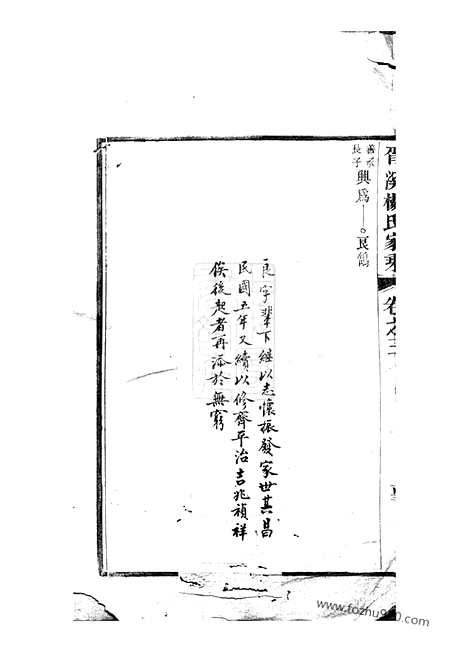 胥溪楊氏家乘
卷之三
善承長子
興爲——。良鶴
良字輩下繼以志懷振發家世其昌
民國五年又續以修齊平治吉兆禎祥
俟後起者再添於無窮
www.fozhu920.com